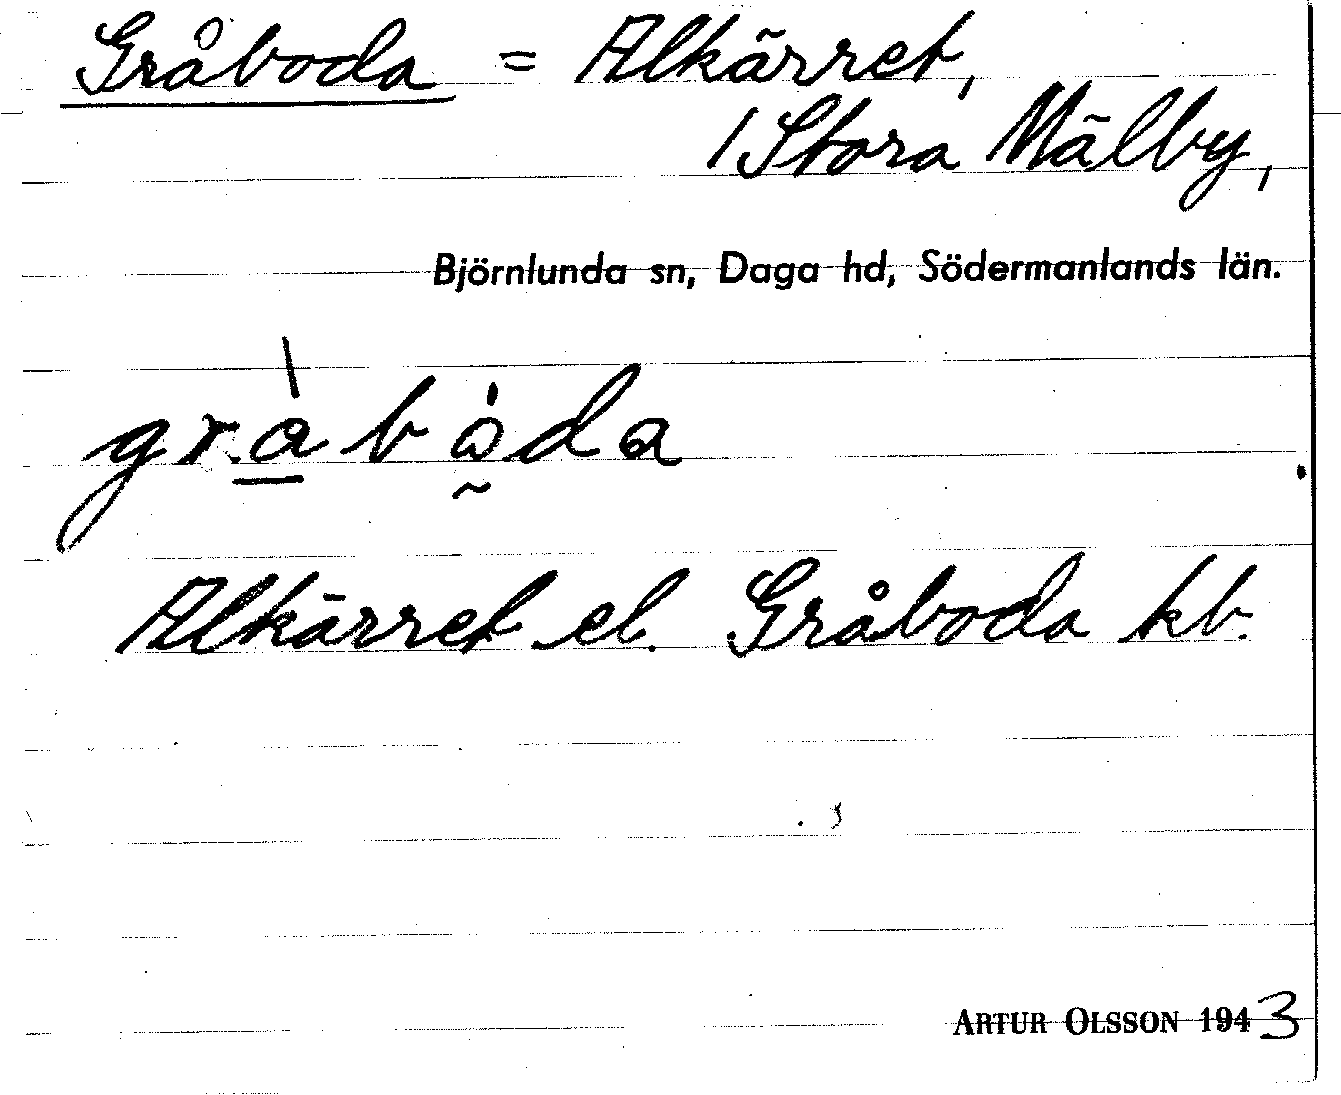 Gråboda = Alkärret,
/Stora Mälby,
Björnlunda sn, Daga hd, Södermanlands län.
gr.à̲bo̰̊̀da
Alkärret el. Gråboda kb.
ARTUR OLSSON 1943